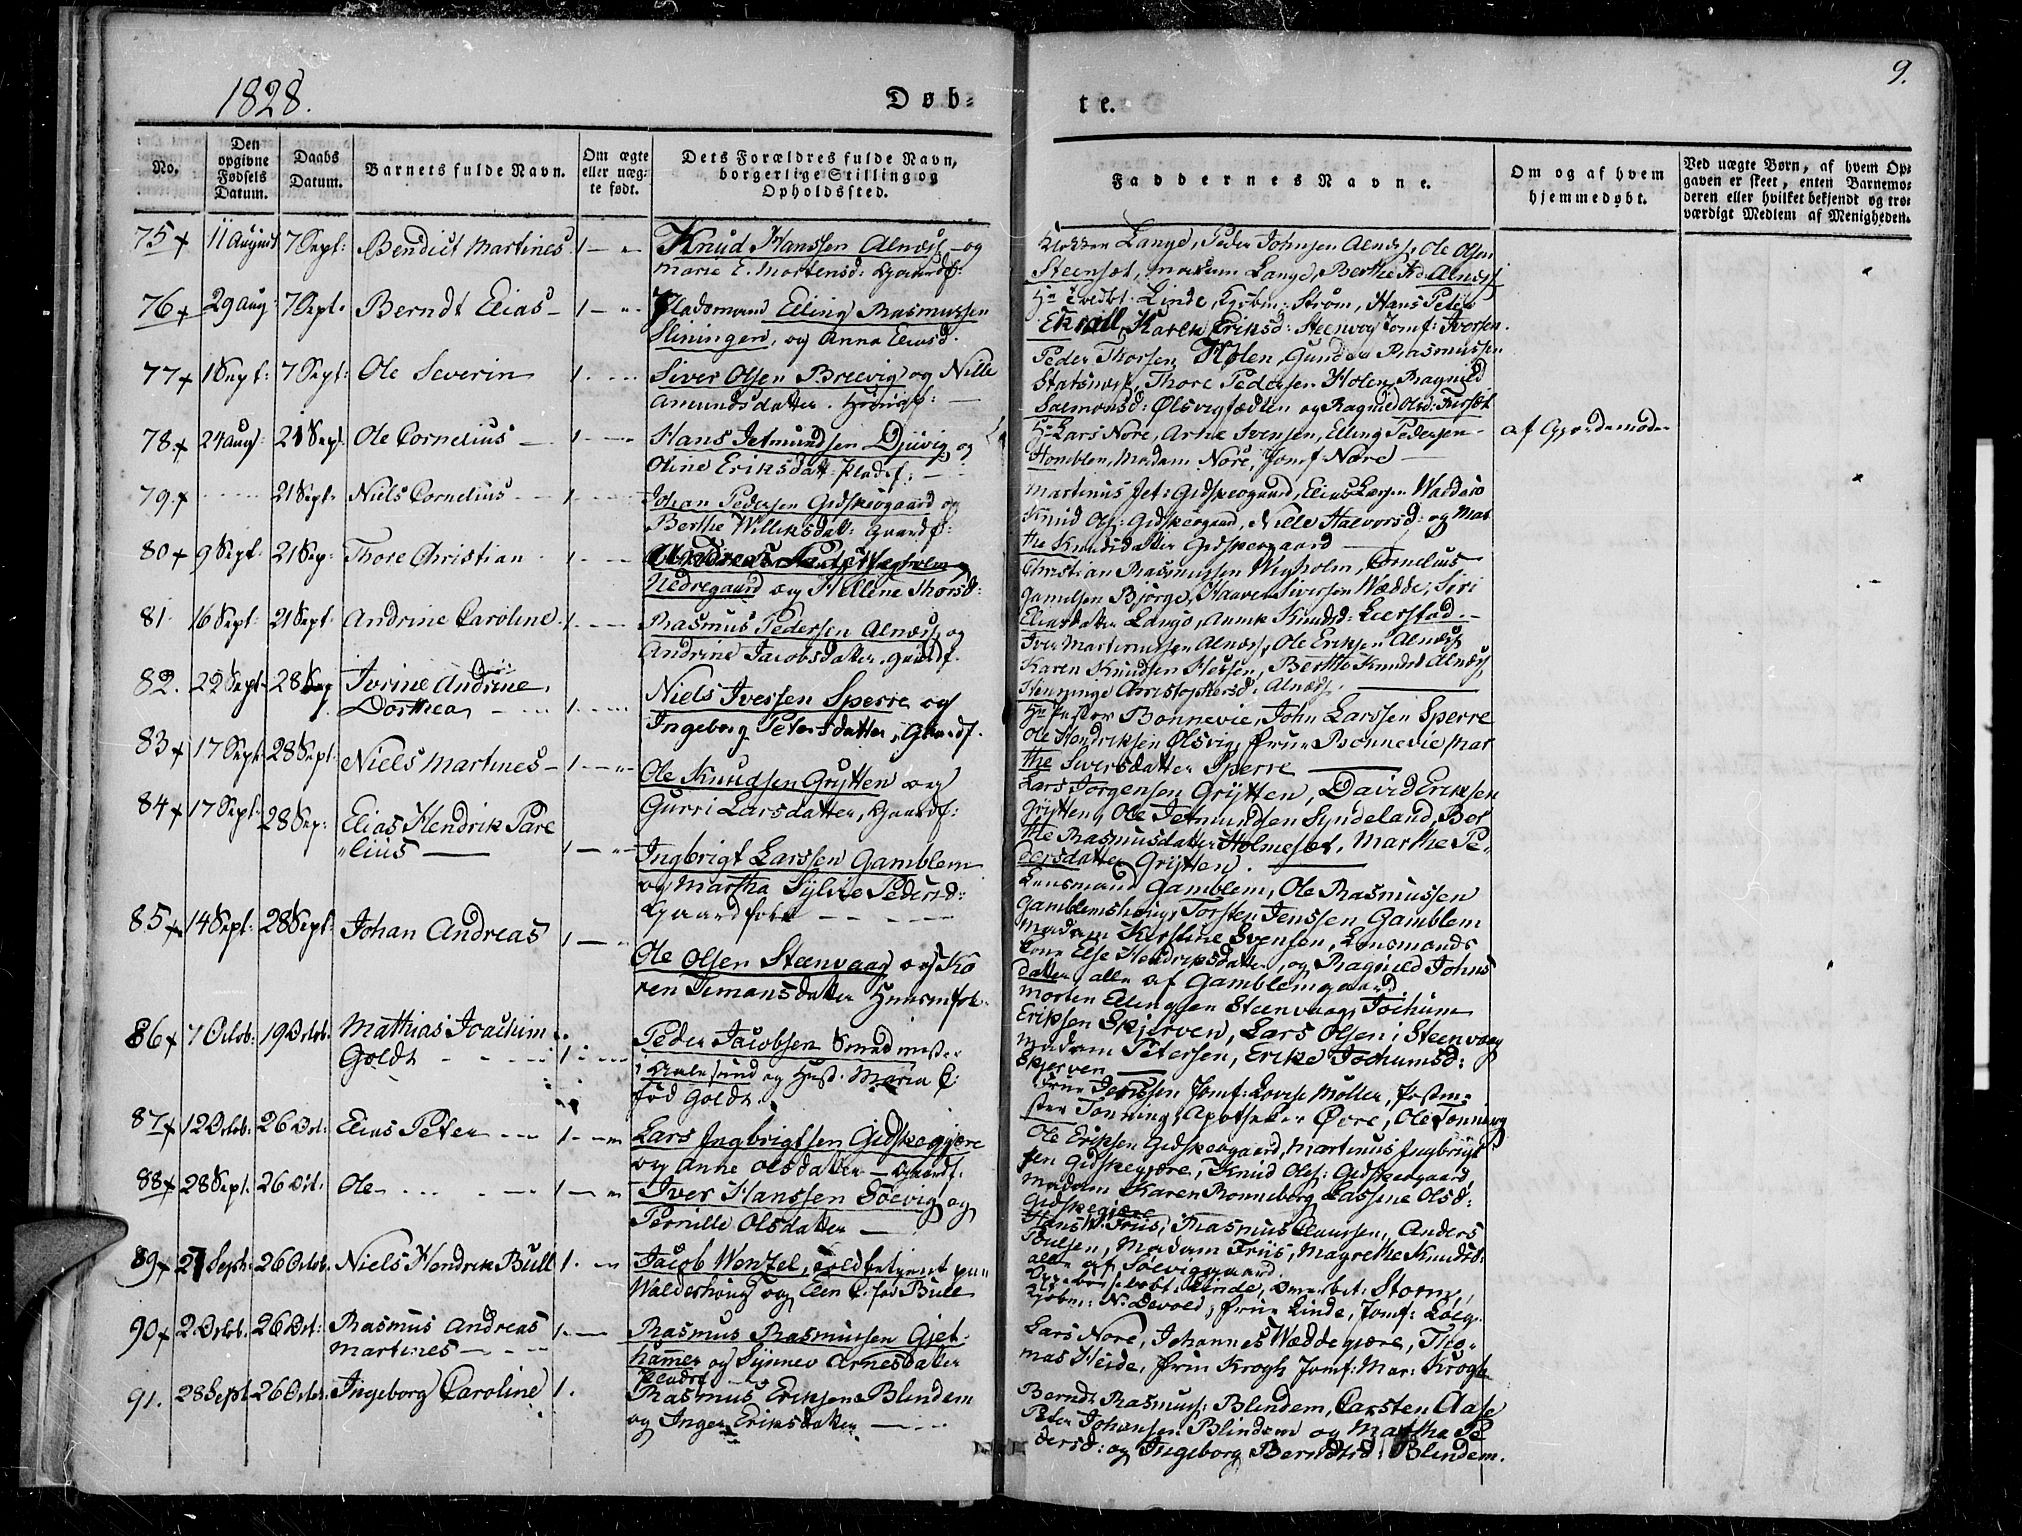 1828.
Døb-
te.
9.
No.
Den opgivne Fødsels Datum.
Daabs Datum.
Barnets fulde Navn.
Om ægte eller uæg-te født.
Dets Forældres fulde Navn, borgerlige Stilling og Opholdssted.
Faddernes Navne.
Om og af hvem hjemmedøbt.
Ved uægte Børn, af hvem Op-gaven er skeet, enten Barnemo-deren eller hvilket bekjendt og tro-værdigt Medlem af Menigheden.
75 + 11 August 7 Sept: Bendict Martines 1 — „ Knud Hanssen Alnæs og
Marie E. Mortensd: Gaardf:
Lange, Peder Johnsen Alnæs, Ole Olsen
Steensæt, Madam Lange, Berthe Kd. Alnæs
76 + 29 Aug 7 Sept. Berndt Elias — 1 — „ Pladsmand Elling Rasmussen
Sliningen, og Anna Eliasd.
Linde, Strøm, Hans Peter
Karen Eriksd: Steenvog Jomf: Iversen
77 + 1 Sept: 7 Sept: Ole Severin 1. Siver Olsen Breevig og Nille
Amundsdatter.
Peder Thorsen Holen, Gunder Rasmussen
Thore Pedersen Holen, Ragnild
Salmonsd: Ølsvig og Ragned Olsd:
78 + 24 Aug: 21 Sept. Ole Cornelius — 1 Hans Jetmundsen Djuvig og
Oline Eriksdatt: Pladsf:
Hr Lars Nore, Arne Svensen, Elling Pedersen
Hamblen, Madam Nore, Jomf Nore —
af Gjordemoder
79. + 21 Sept. Niels Cornelius 1 Johan Pedersen Gidskeogaard og
Berthe Williksdatt: Gaardf:
Martinus Jet: Gidskeogaard, Elias Larsen
Knud Ols: Gidskeogaard, Nille Halvorsd: og Mar
the Knudsdatter Gidskeogaard
80 + 9 Sept. 21 Sep: Thore Christian 1.
Nedregaard og Hellene Thorsd:
Christian Rasmussen Wegholm, Cornelius
Bjørge, Siversen Wædde, Siri
Eliasdatter Langø, Anne Knudsd: Leerstad
81. 16 Sept: 21 Sept: Andrine Caroline 1. Rasmus Pedersen Alnæs og
Andrine Jacobsdatter, Gaardf.
Iver Martinussen Alnæs, Ole Eriksen Alnæs
Karen Knudsen Flessen, Berthe Knudsd Alnæs
Henninge Christophersd: Alnæs. —
82. 22 Sept. 28 Sep Ivrine Andrine
Dorthea 1. Niels Iverssen Sperre og
Ingeborg Petersdatter, Gaardf.
Hr Pastor Bonnevie, John Larssen Sperre
Ole Hendriksen Ølsvig, Frue Bonnevie Mar
the Siversdatter Sperre —
83 + 17 Sept 28 Sept: Niels Martines — 1 Ole Knudsen Grytten og
Gurri Larsdatter, Gaardf:
Lars Jorgensen Grytten, David Eriksen
Grytten, Ole Jetmundsen Syndeland, Ber
the Rasmusdatter Holmeset, Marthe Pe-
dersdatter Grytten.
84 + 17 Sept. 28 Sep: Elias Hendrik Pare
„lius — 1 — „ Ingbrigt Larssen Gamblem
og Martha Sylvie Pedersd:
Gaardfolk
Lensmand Gamblem, Ole Rasmussen
Gamblemshoug, Torsten Jenssen Gamblem
Madam Kirstine Svensen, Lensmands
kone Else Hendriksdatter, og Ragnild Johns
datter alle af Gamblemgaard
85 + 14 Sept. 28 Sept: Johan Andreas 1 — „ Ole Olsen Steenvaag og Ka
ren Simonsdatter Huusmfolk.
Morten Ellingsen Steenvaag, Jochum
Eriksen Skjerven, Lars Olsen i Steenvaag
Madam Petersen, Erike Jochumsd:
Skjerven —
86 + 7 Octob: 19 Octob. Mathias Joachim
Goldt 1 Peder Jacobsen Smedmester
i Aalesund og Hust. Maria C.
fød Goldt.
Frue Jenssen Jomf: Lovise Møller, Postme-
ster Tonning, Apotheker Øvre, Ole Tonning
87 + 12 Octob. 26 Oct: Elias Peter 1 Lars Ingbrigtsen Gidskegjære
og Anne Olsdatter — Gaardf.
Ole Eriksen Gidskeogaard, Martinus Ingbrigt
sen Gidskegjære, Knud Ols: Gidskeogaard,
Madam Karen Ronneberg Lassine Olsd:
Gidskegjære
88 + 28 Sept. 26 Oct. Ole 1 — „ Iver Hanssen Soevig og
Pernille Olsdatter —
Hans W. Friis, Rasmus Claussen, Anders
Poulsen, Madam Friis, Magrethe Knudsd:
alle af Soeviggaard
89 + 27 Septb. 26 Octob. Niels Hendrik Bull 1. „ Jacob Wentzel,
Walderhoug og Elen C. fød Bull
Linde, Storm,
N. Devold, Frue Linde, Jomf:
90 + 2 Octob. 26 Oct: Rasmus Andreas
Martines — 1. — Rasmus Rasmussen Gjet-
hammer og Synnev Arnesdatter
Lars Nore, Johannes Wæddegjære, Tho-
mas Heide, Frue Krogh Jomf: Mar: Krogh
91. 28 Sept 26 Octob. Ingeborg Caroline 1. Rasmus Eriksen Blindem
og Inger Eriksdatter —
Berndt Rasmuss: Blindem, Carsten Aase
Peter Johansen Blindem og Martha Pe
dersd: og Ingeborg Berndtsd: Blindem.